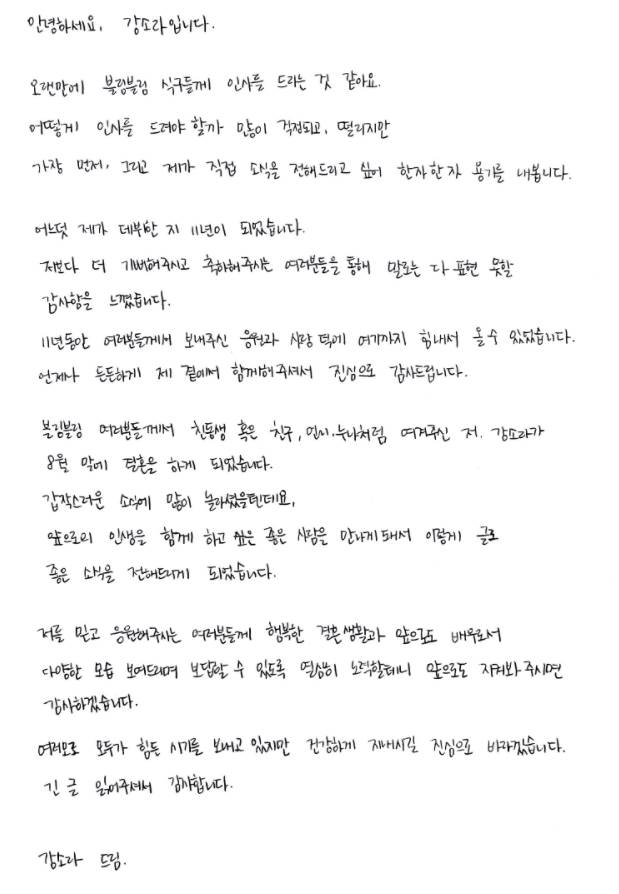 안녕하세요, 강소라입니다.
오랜만에 블링블링 식구들께 인사를 드리는 것 같아요.
어떻게 인사를 드려야 할까 많이 걱정되고, 떨리지만
가장 먼저, 그리고 제가 직접 소식을 전해드리고 싶어 한자한자 용기를 내봅니다.
어느덧 제가 데뷔한 지 11년이 되었습니다.
저보다 더 기뻐해주시고 축하해주시는 여러분들을 통해 말로는 다 표현 못할
감사함을 느꼈습니다.
11년동안 여러분들께서 보내주신 응원과 사랑 덕에 여기까지 힘내서 올 수 있었습니다.
언제나 든든하게 제 곁에서 함께해주셔서 진심으로 감사드립니다.
블링블링 여러분들께서 친동생 혹은 친구, 언니·누나처럼 여겨주신 저, 강소라가
8월 말에 결혼을 하게 되었습니다.
갑작스러운 소식에 많이 놀라셨을텐데요,
앞으로의 인생을 함께 하고 싶은 좋은 사람을 만나게 돼서 이렇게 글로
좋은 소식을 전해드리게 되었습니다.
저를 믿고 응원해주시는 여러분들께 행복한 결혼생활과 앞으로도 배우로서
다양한 모습 보여드리며 보답할 수 있도록 열심히 노력할테니 앞으로도 지켜봐 주시면
감사하겠습니다.
여러모로 모두가 힘든 시기를 보내고 있지만 건강하게 지내시길 진심으로 바라겠습니다.
긴 글 읽어주셔서 감사합니다.
강소라 드림.